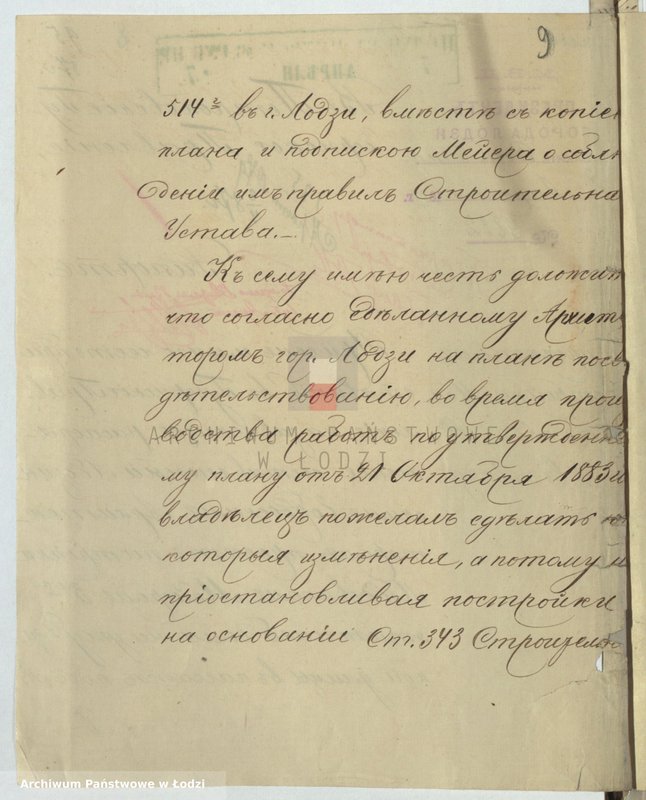 9
514 въ г. Лодзи, вмѣстѣ съ копіе
плана и подпискою Мейера о соблю
деніи имъ правилъ Строительна
Устава.—
Къ сему имѣю честь доложит
что согласно сдѣланному Архит
торомъ гор. Лодзи на планѣ посв
дѣтельствованію, во время прои
водства работъ по утвержденно
му плану отъ 21 Октября 1883
владѣлецъ пожелалъ сдѣлать нѣ
которыя измѣненія, а потому н
пріостановливая постройки
на основаніи Ст. 343 Строительн
ARCHIWUM PAŃSTWOWE
W ŁODZI
Archiwum Państwowe w Łodzi